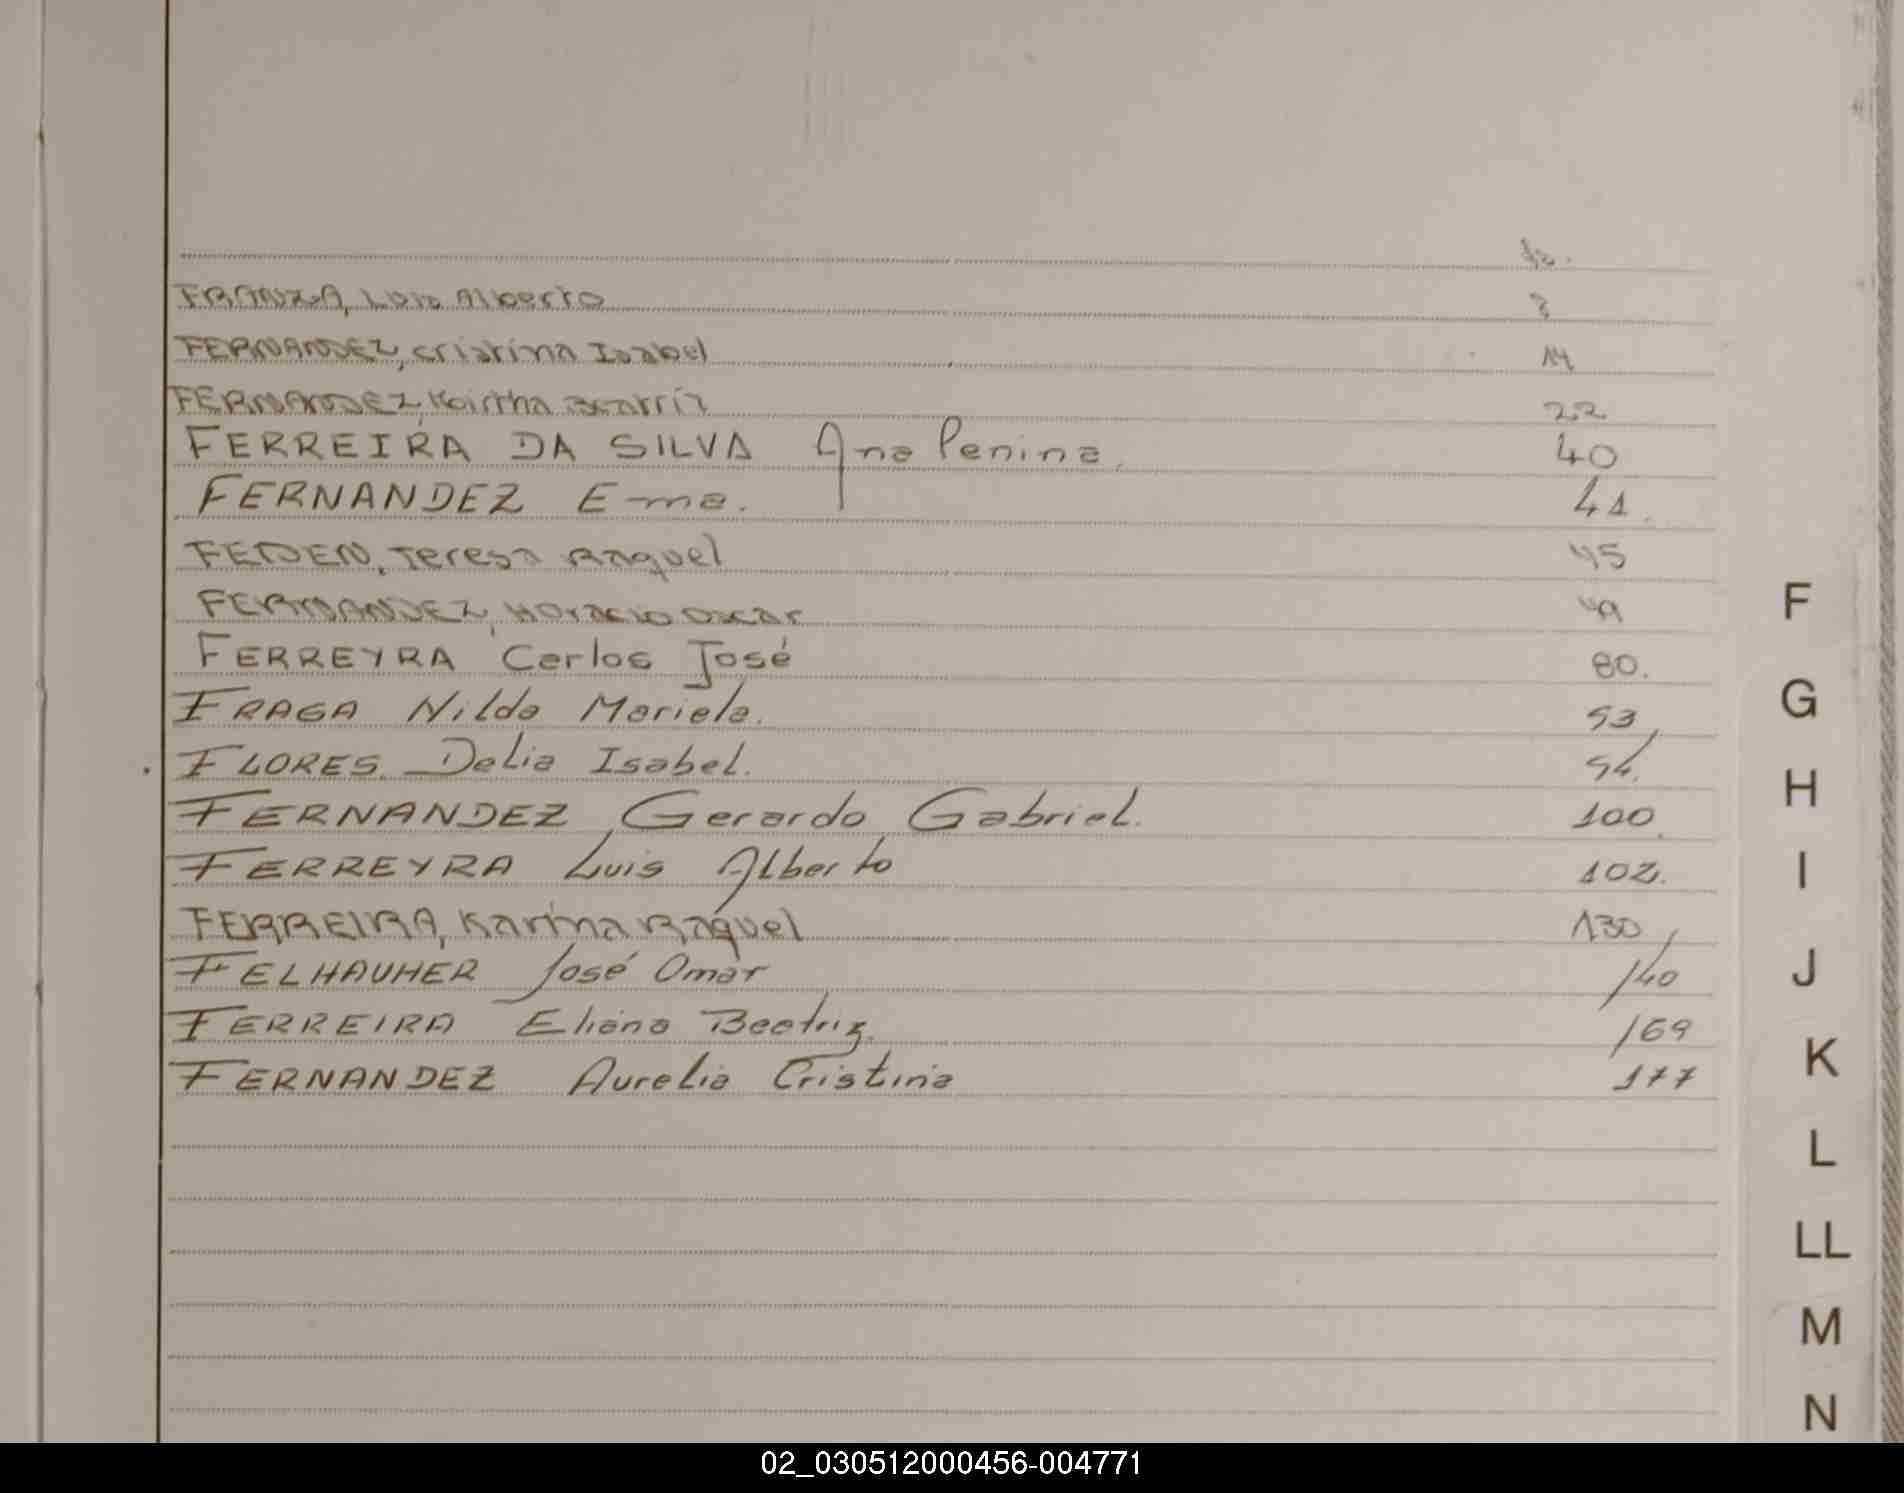 fo.
FRANZA, Luis Alberto 3
FERNANDEZ, Cristina Isabel 14
FERNANDEZ, Mirtha Beatriz 22
FERREIRA DA SILVA Ana Penina. 40
FERNANDEZ Ema. 41.
FEDEN, Teresa Raquel 45
FERNANDEZ, Horacio Oscar 49
FERREYRA Carlos José 80.
FRAGA Nilda Mariela. 93
FLORES. Delia Isabel. 94.
FERNANDEZ Gerardo Gabriel. 100.
FERREYRA Luis Alberto 102.
FERREIRA, Karina Raquel 130
FELHAUHER José Omar 140
FERREIRA Eliana Beatriz. 169
FERNANDEZ Aurelia Cristina 177
F
G
H
I
J
K
L
LL
M
N
02_030512000456-004771